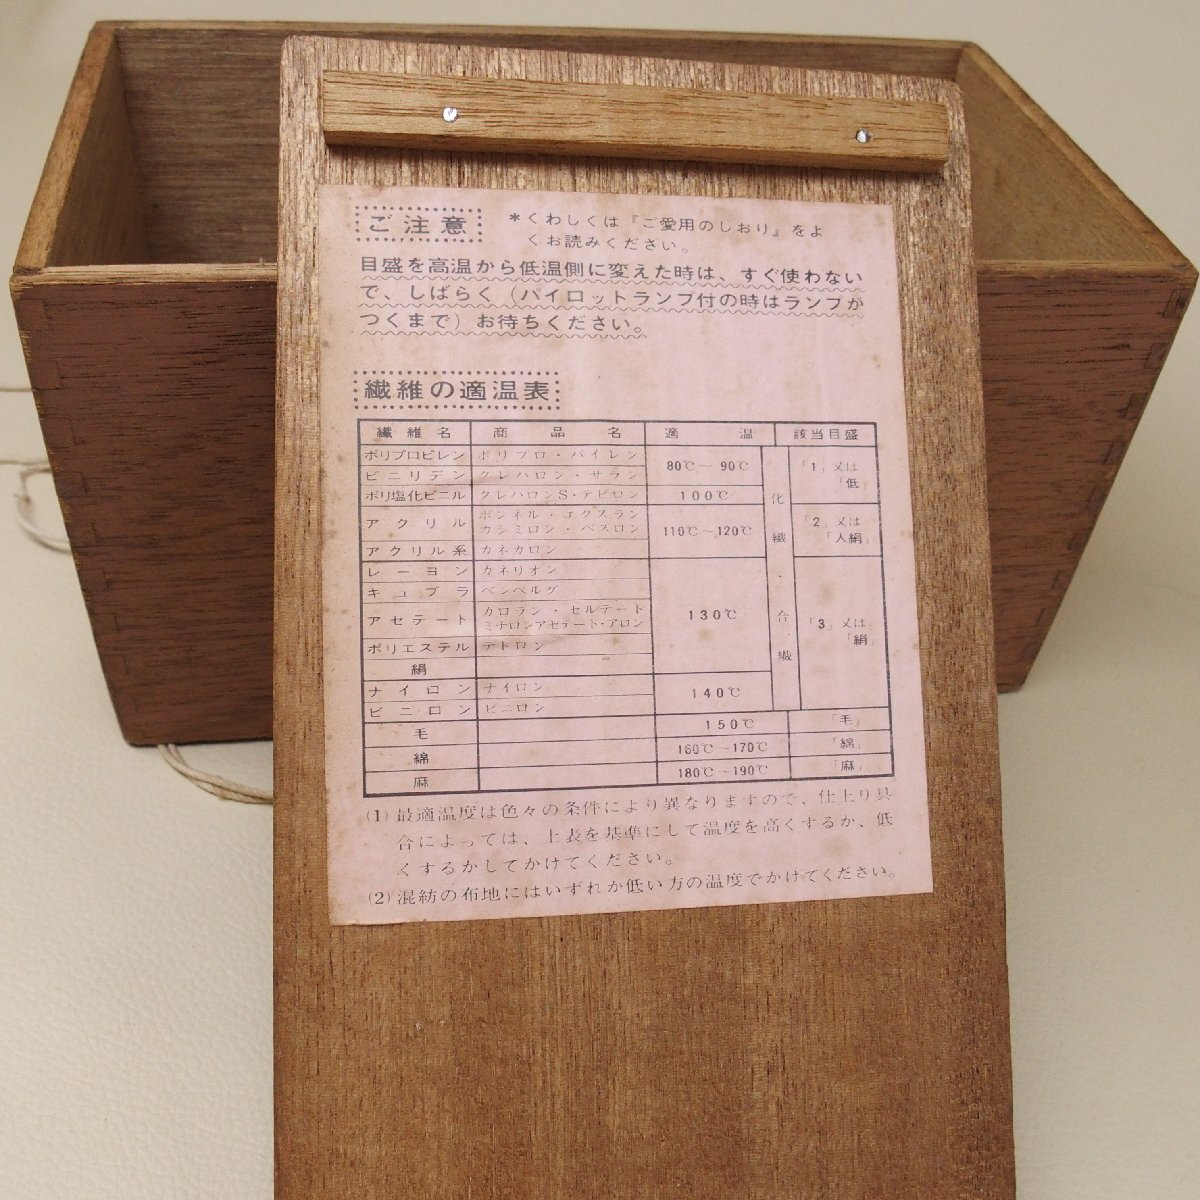 ご注意
*くわしくは『ご愛用のしおり』をよ
くお読みください。
目盛を高温から低温側に変えた時は、すぐ使わない
で、しばらく（パイロットランプ付の時はランプが
つくまで）お待ちください。
繊維の適温表
繊維名 商品名 適温 該当目盛
ポリプロピレン ポリプロ・パイレン 80℃～90℃ 「1」又は「低」
ビニリデン クレハロン・サラン
ポリ塩化ビニル クレハロンS・テビロン 100℃
アクリル ボンネル・エクスラン 110℃～120℃ 「2」又は「人絹」
カシミロン・ベスロン
アクリル系 カネカロン
レーヨン カネリオン 130℃ 「3」又は「絹」
キュプラ ベンベルグ
アセテート カロラン・セルテート
ミナロンアセテート・アロン
ポリエステル テトロン
絹
ナイロン ナイロン 140℃
ビニロン ビニロン
化繊・合繊
毛 150℃ 「毛」
綿 160℃～170℃ 「綿」
麻 180℃～190℃ 「麻」
(1) 最適温度は色々の条件により異なりますので、仕上り具
合によっては、上表を基準にして温度を高くするか、低
くするかしてかけてください。
(2) 混紡の布地にはいずれか低い方の温度でかけてください。